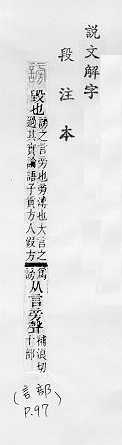 說文解字
段注本
毀也
謗之言旁也旁溥也大言之
過其實論語子貢方人假方
爲
謗
从言旁聲
補浪切
十部
(言部)
P.97